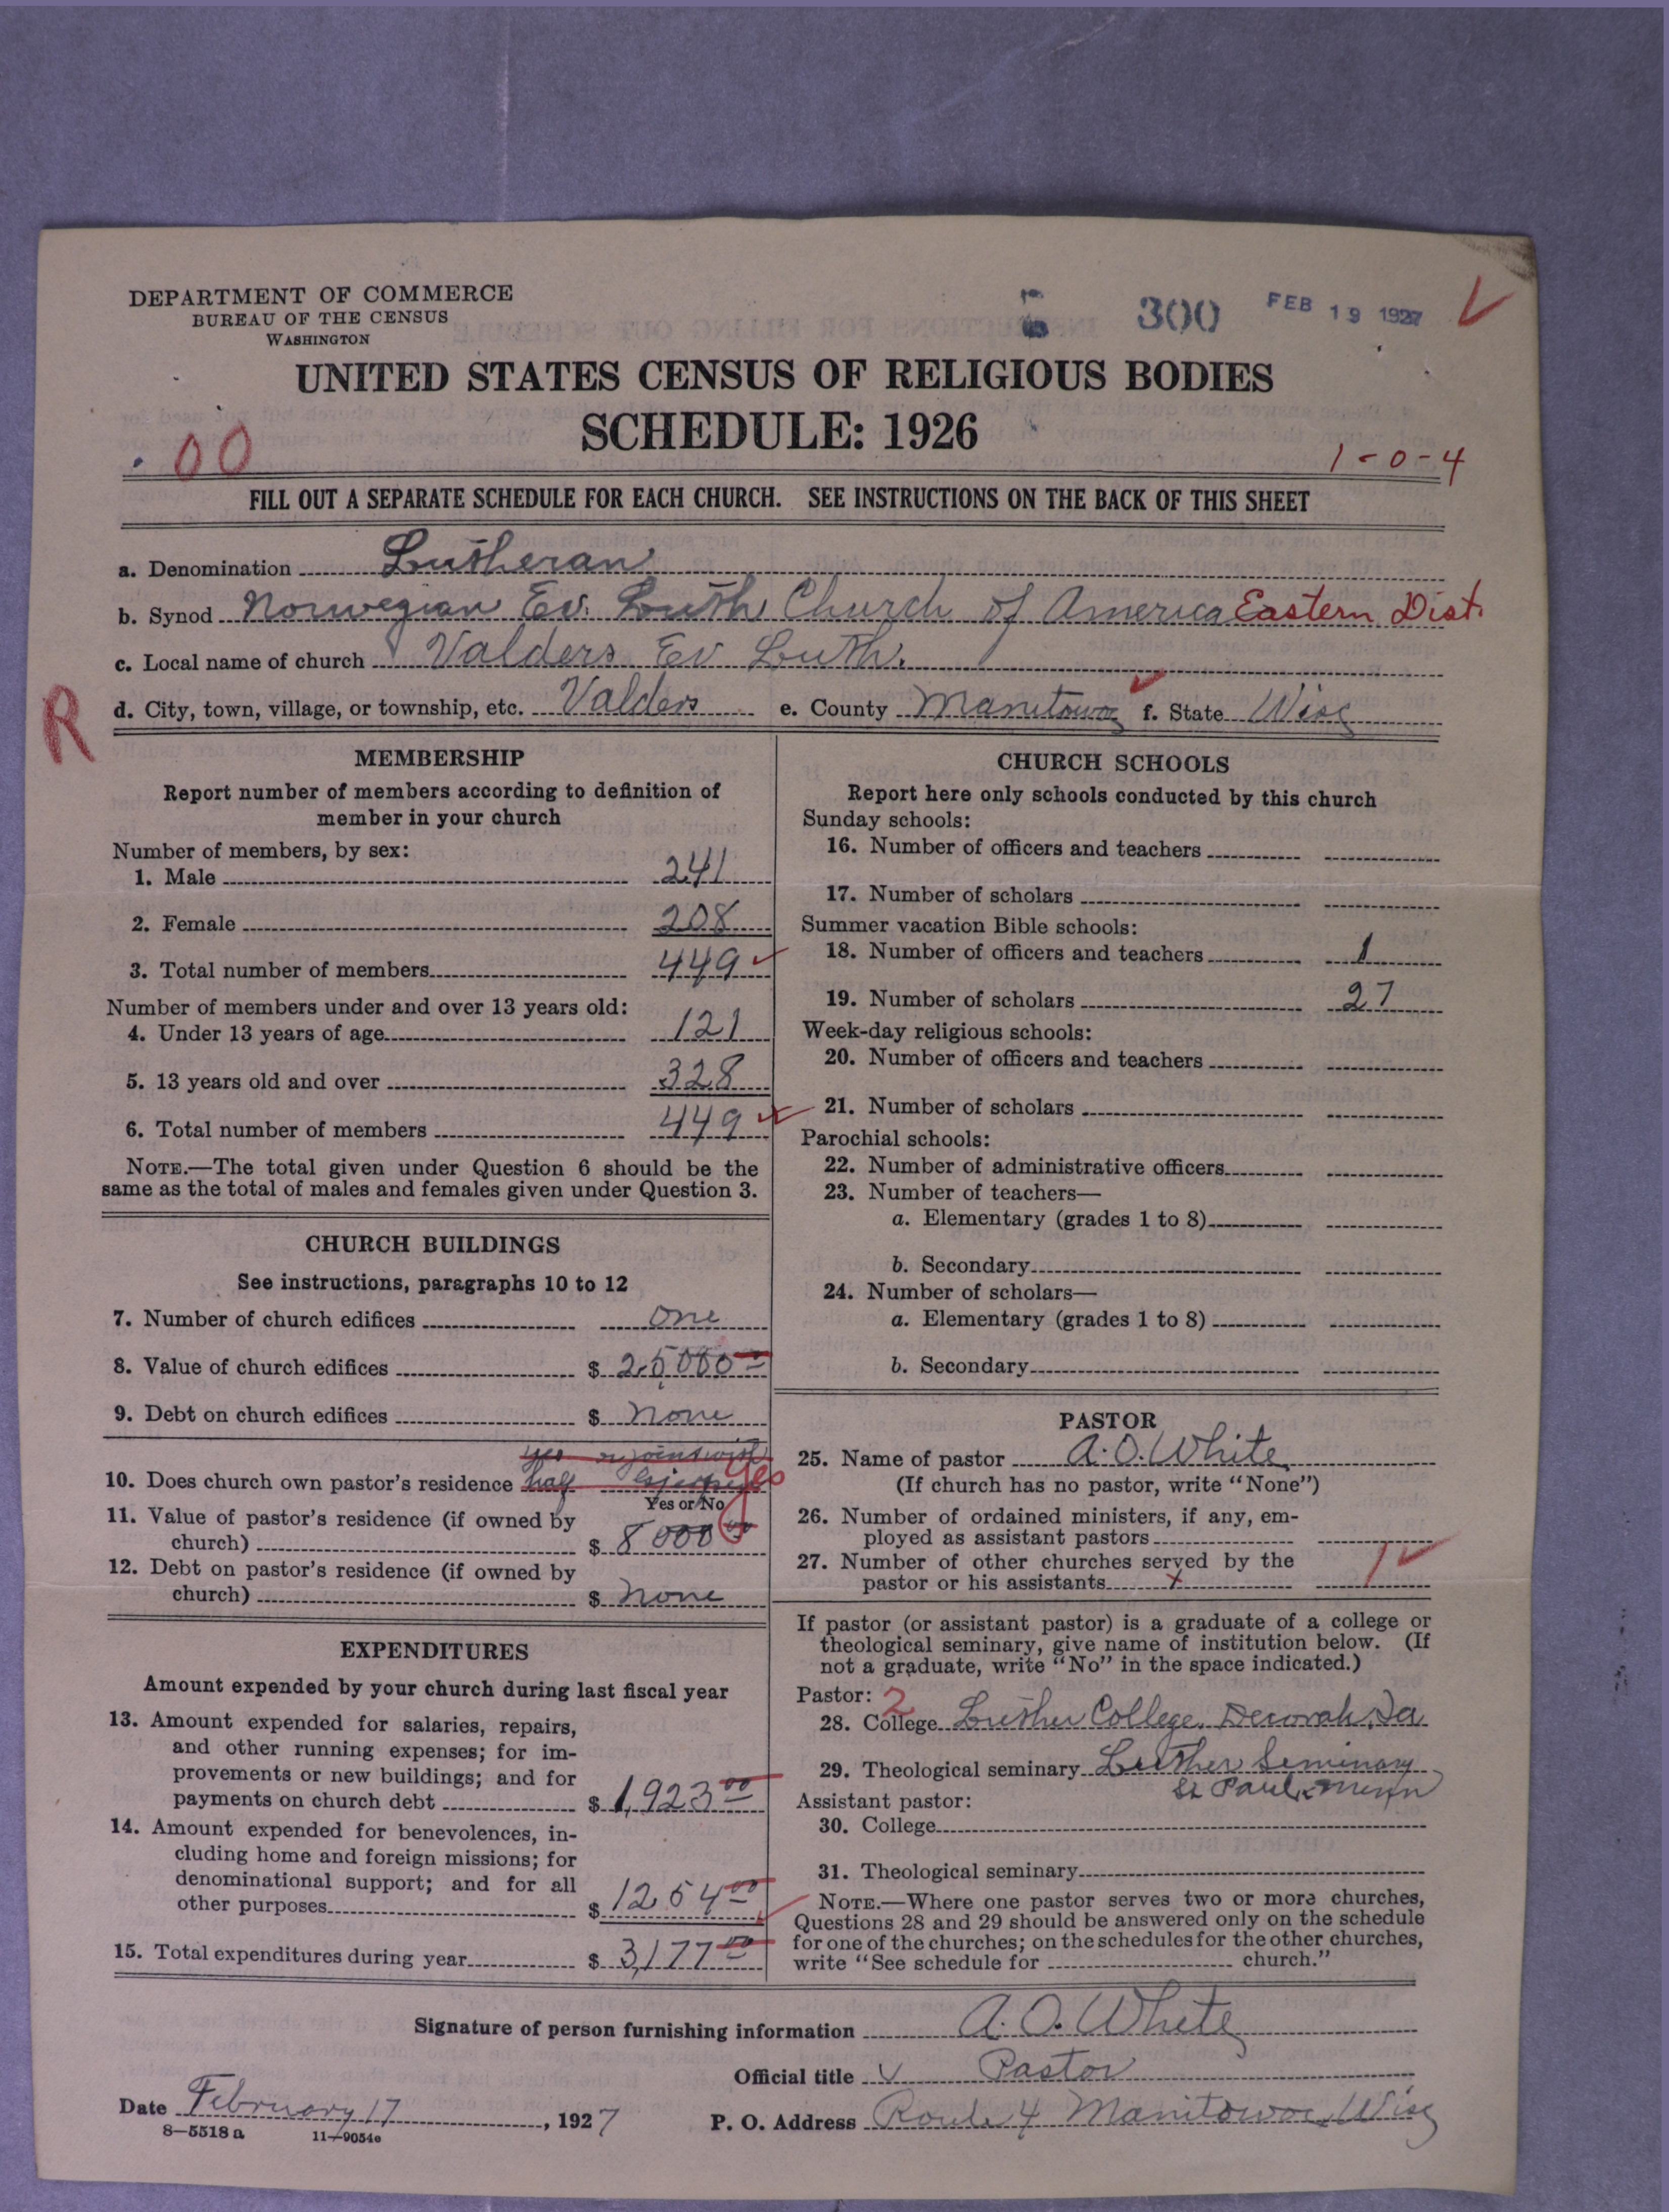 DEPARTMENT OF COMMERCE
BUREAU OF THE CENSUS
WASHINGTON
300 FEB 19 1927
UNITED STATES CENSUS OF RELIGIOUS BODIES
SCHEDULE: 1926
00
1-0-4
FILL OUT A SEPARATE SCHEDULE FOR EACH CHURCH. SEE INSTRUCTIONS ON THE BACK OF THIS SHEET
a. Denomination Lutheran
b. Synod Norwegian Ev. Luth Church of America Eastern Dist.
c. Local name of church Valders Ev Luth.
R
d. City, town, village, or township, etc. Valders e. County Manitowoc f. State Wisc
MEMBERSHIP
Report number of members according to definition of
member in your church
Number of members, by sex:
1. Male 241
2. Female 208
3. Total number of members 449
Number of members under and over 13 years old:
4. Under 13 years of age 121
5. 13 years old and over 328
6. Total number of members 449
NOTE.—The total given under Question 6 should be the
same as the total of males and females given under Question 3.
CHURCH BUILDINGS
See instructions, paragraphs 10 to 12
7. Number of church edifices one
8. Value of church edifices $ 25,000 00
9. Debt on church edifices $ none
10. Does church own pastor's residence half yes
Yes or No
11. Value of pastor's residence (if owned by
church) $ 8000 00
12. Debt on pastor's residence (if owned by
church) $ none
EXPENDITURES
Amount expended by your church during last fiscal year
13. Amount expended for salaries, repairs,
and other running expenses; for im-
provements or new buildings; and for
payments on church debt $ 1,923 00
14. Amount expended for benevolences, in-
cluding home and foreign missions; for
denominational support; and for all
other purposes $ 1254 00
15. Total expenditures during year $ 3,177 00
CHURCH SCHOOLS
Report here only schools conducted by this church
Sunday schools:
16. Number of officers and teachers
17. Number of scholars
Summer vacation Bible schools:
18. Number of officers and teachers 1
19. Number of scholars 27
Week-day religious schools:
20. Number of officers and teachers
21. Number of scholars
Parochial schools:
22. Number of administrative officers
23. Number of teachers—
a. Elementary (grades 1 to 8)
b. Secondary
24. Number of scholars—
a. Elementary (grades 1 to 8)
b. Secondary
PASTOR
25. Name of pastor A. O. White
(If church has no pastor, write "None")
26. Number of ordained ministers, if any, em-
ployed as assistant pastors
27. Number of other churches served by the
pastor or his assistants x 1
If pastor (or assistant pastor) is a graduate of a college or
theological seminary, give name of institution below. (If
not a graduate, write "No" in the space indicated.)
Pastor: 2
28. College Luther College, Decorah, Ia
29. Theological seminary Luther Seminary
St Paul, Minn
Assistant pastor:
30. College
31. Theological seminary
NOTE.—Where one pastor serves two or more churches,
Questions 28 and 29 should be answered only on the schedule
for one of the churches; on the schedules for the other churches,
write "See schedule for church."
Signature of person furnishing information A. O. White
Official title Pastor
Date February 17, 1927 P. O. Address Route 4 Manitowoc, Wisc
8—5518 a 11—9054e